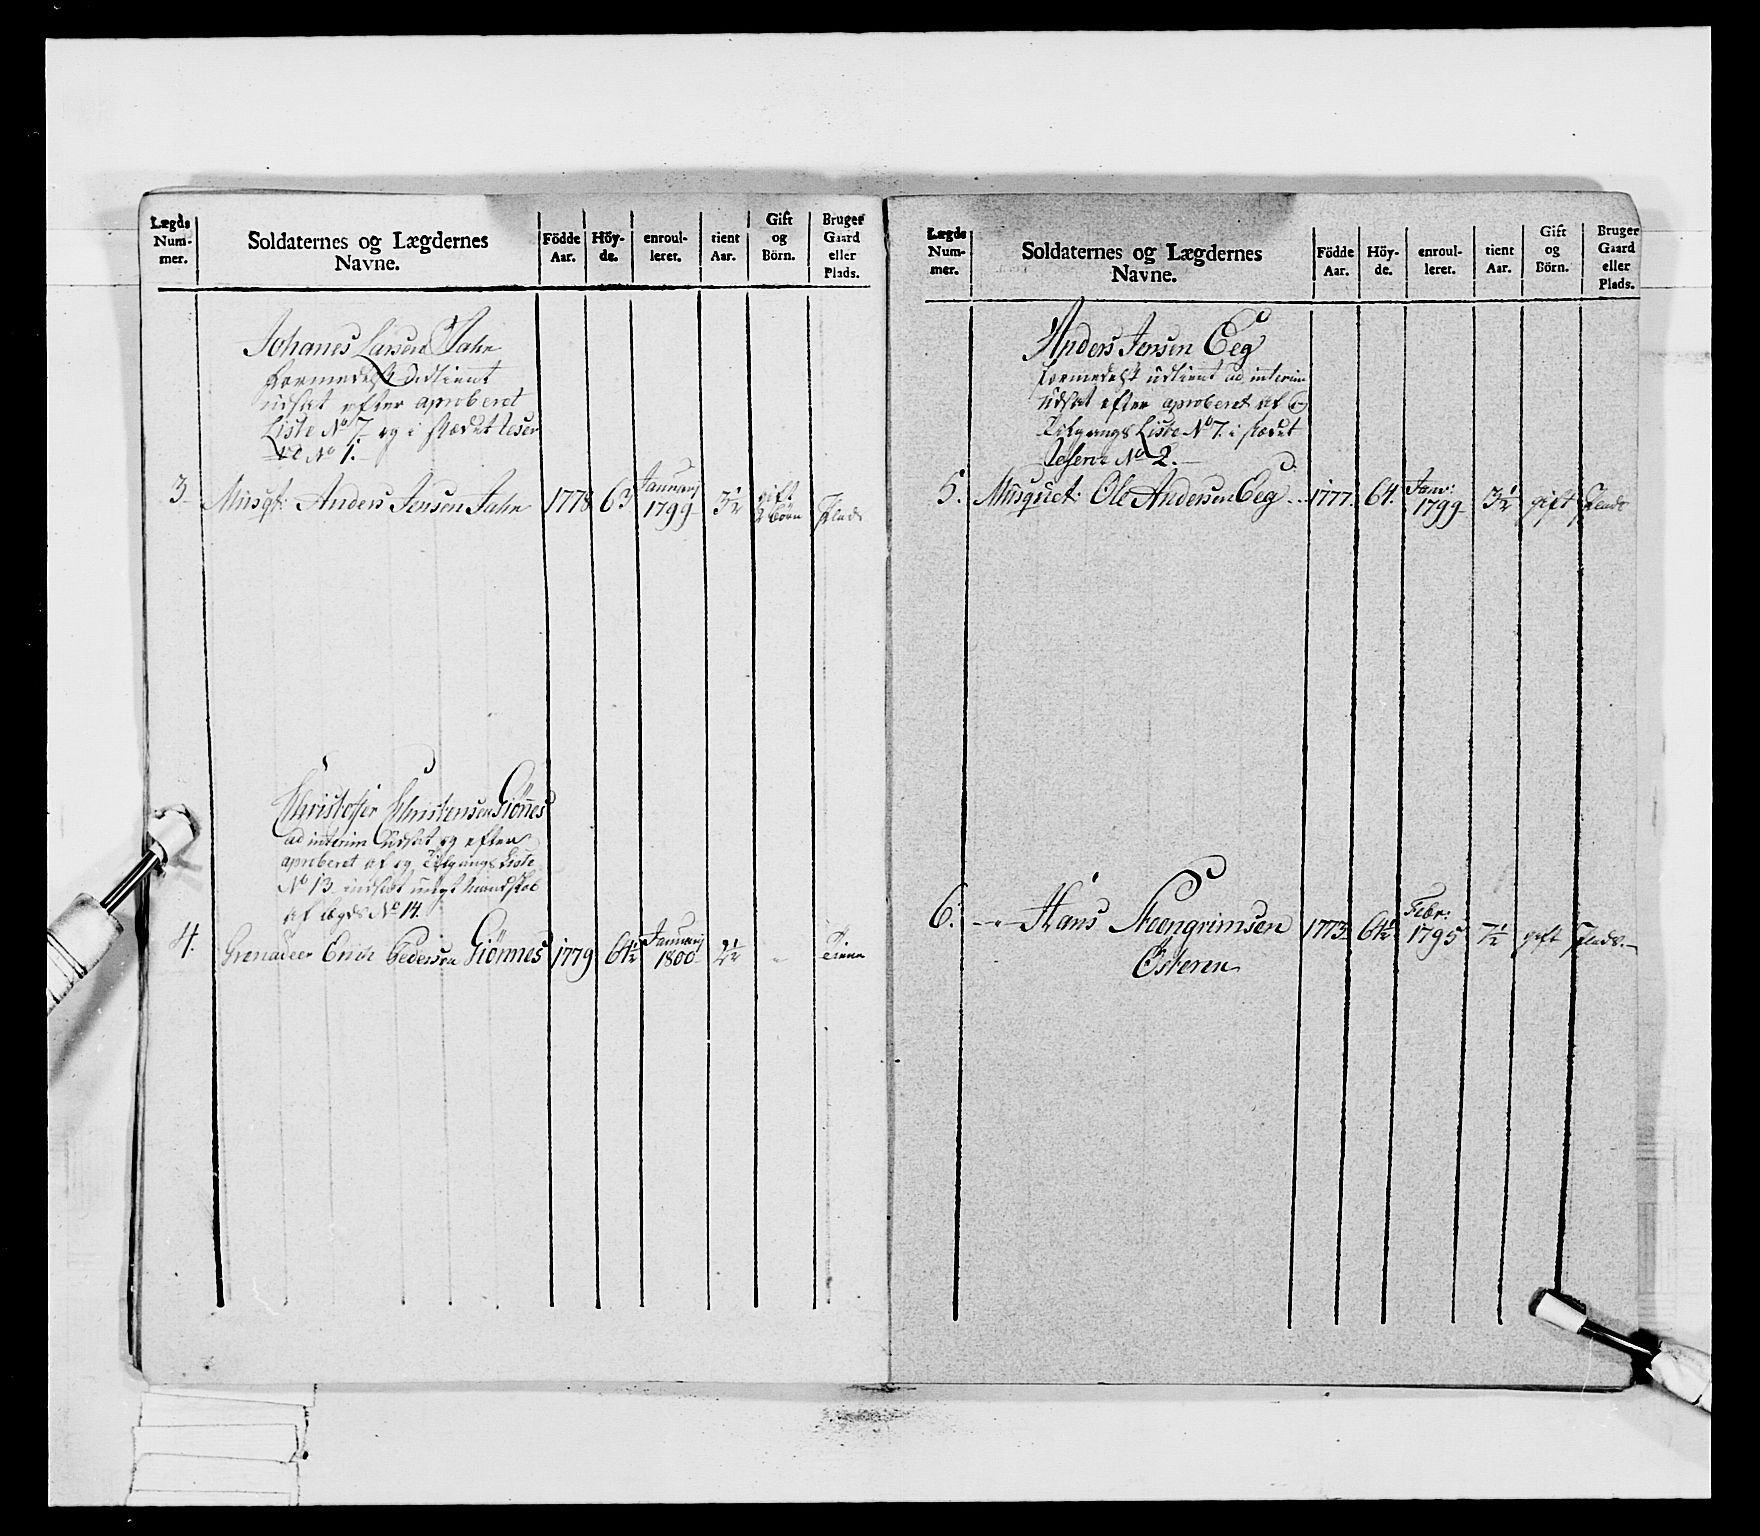 Lægds
Num-
mer.
Soldaternes og Lægdernes
Navne.
Födde
Aar.
Höy-
de.
enroul-
leret.
tient
Aar.
Gift
og
Börn.
Bruger
Gaard
eller
Plads.
Johanes Larsen Jahr
formedelst Udtient
udsat efter aproberet
Liste No 7. og i stædet reser
ve No 1.
3. Musqt: Anders Jensen Jahr 1778 63 Januarij 1799 3½ gift 2 börn Plads
Christofer Christensen Giönnes
ad interim Udsat og efter
aproberet af og Tilgangs Liste
No 13 indsat ungt mandskab
af Lægds No 14.
4. Grenadeer Erich Pedersen Giönnes 1779 61½ Januarij 1800 2½ " Tiener
Lægds
Num-
mer.
Soldaternes og Lægdernes
Navne.
Födde
Aar.
Höy-
de.
enroul-
leret.
tient
Aar.
Gift
og
Börn.
Bruger
Gaard
eller
Plads.
Anders Jensen Eeg
formedelst udtient ad interim
udsat efter aproberet af og
Tilgangs Liste No 7. i stædet
Reserve No 2.
5. Musquet: Ole Andersen Eeg 1777. 64. Janv: 1799 3½ gift Plads
6. Hans Steengrimsen 1773 61½ Febr: 1795 7½ gift Plads.
Österen